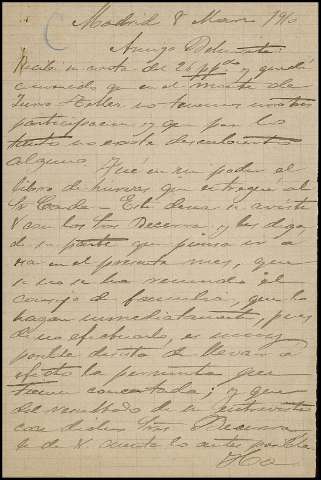 Madrid 8 Marzo 1910
Amigo
Recibi su carta del 26 pp.do y quedo
en que en el
no tenemos nosotros
participacion y que por lo
tanto no existe descubierto
alguno. Fué en mi poder el
libro de que entregué al
Sr Conde. Este desea se aviste
V con los Sres Becerra y les diga,
de su parte que piensa ir a
en el presente mes, que
si no se ha reunido el
consejo de familia, que lo
hagan inmediatamente, pues
de no efectuarlo, es muy
posible desista de llevar a
efecto la permuta que
tiene concertada; y que
del resultado de su entrevista
con dichos Sres Becerra
le dé V cuenta lo antes posible